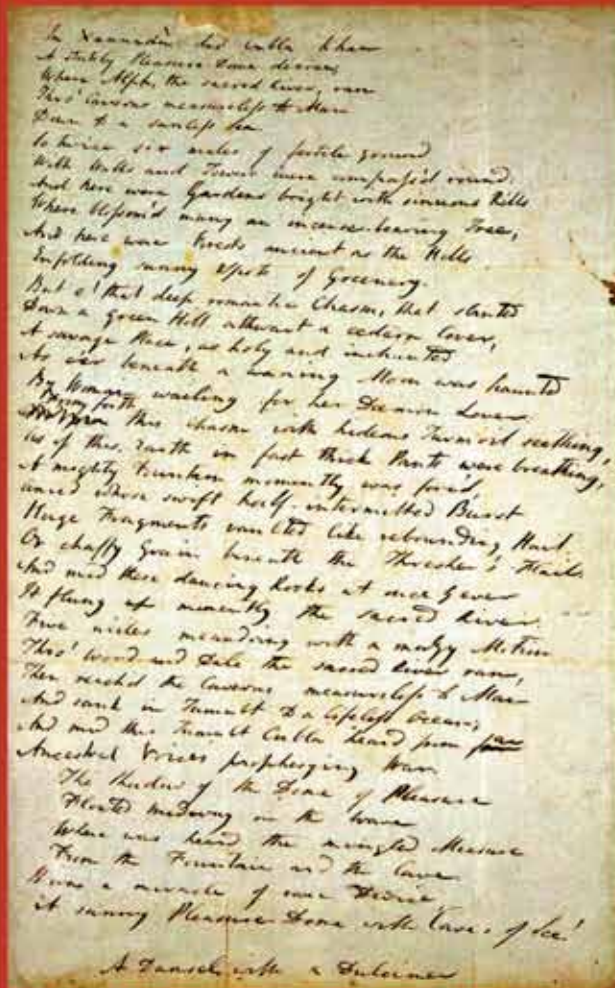 In Xannadù did Cubla Khan
A stately Pleasure Dome decree,
Where Alph, the sacred River, ran
Thro' Caverns measureless to Man
Down to a sunless Sea.
So twice six miles of fertile ground
With Walls and Towers were compass'd round:
And here were Gardens bright with sinuous Rills
Where blossom'd many an incense-bearing Tree,
And here were Forests ancient as the Hills
Enfolding sunny Spots of Greenery.
But o! that deep romantic Chasm, that slanted
Down a green Hill athwart a cedarn Cover,
A savage Place, as holy and inchanted
As e'er beneath a waning Moon was haunted
By Woman wailing for her Dæmon Lover:
From forth
this Chasm with hideous Turmoil seething,
As if this Earth in fast thick Pants were breathing,
A mighty Fountain momently was forc'd,
Amid whose swift half-intermitted Burst
Huge Fragments vaulted like rebounding Hail,
Or chaffy Grain beneath the Thresher's Flail.
And mid these dancing Rocks at once & ever
It flung up momently the sacred River.
Five miles meandring with a mazy Motion
Thro' Wood and Dale the sacred River ran,
Then reach'd the Caverns measureless to Man
And sank in Tumult to a lifeless Ocean;
And mid this Tumult Cubla heard from far
Ancestral Voices prophesying War.
The Shadow of the Dome of Pleasure
Floated midway on the Wave
Where was heard the mingled Measure
From the Fountain and the Cave.
It was a miracle of rare Device,
A sunny Pleasure-Dome with Caves of Ice!
A Damsel with a Dulcimer